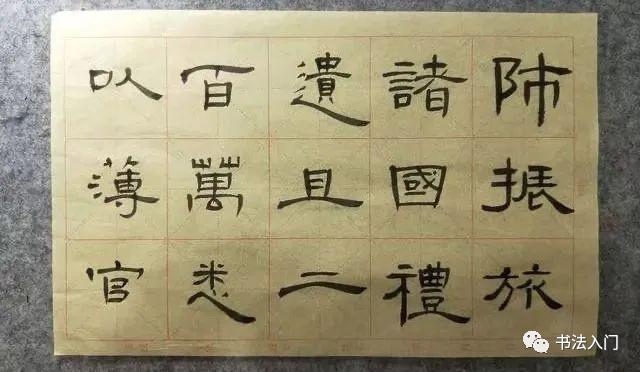 師振旅
諸國禮
遺且二
百萬悉
以薄官
书法入门